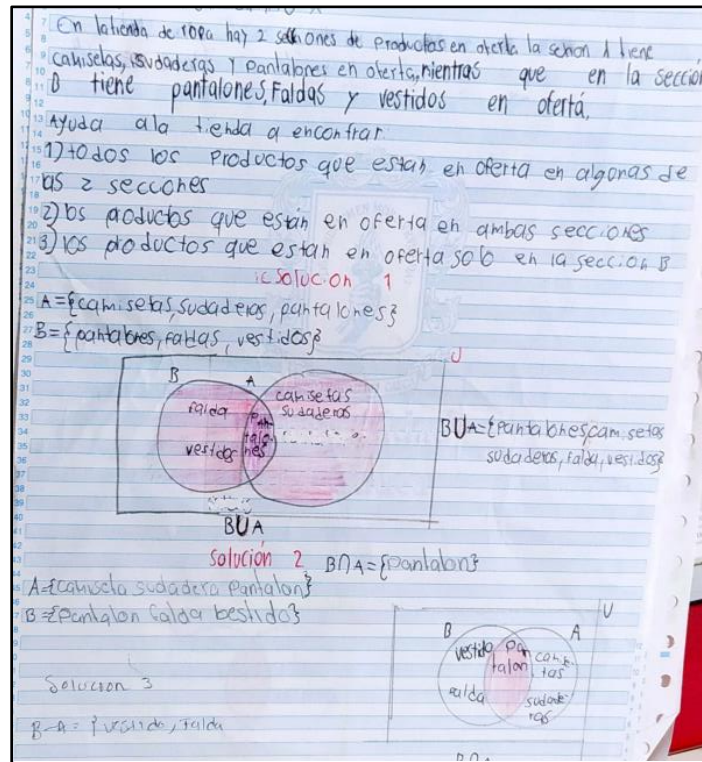 En la tienda de ropa hay 2 secciones de productos en oferta la seccion A tiene
camisetas, sudaderas y pantalones en oferta, mientras que en la sección
B tiene pantalones, Faldas y vestidos en ofertá,
Ayuda ala tienda a encontrar
1) todos los productos que estan en oferta en algunas de
las 2 secciones
2) los productos que están en oferta en ambas secciones
3) los productos que estan en oferta solo en la seccion B
Solucion 1
A={camisetas, sudaderas, pantalones}
B={pantalones, faldas, vestidos}
U
B A
falda
vestidos
pantalones
camisetas
sudaderas
BUA={pantalones, camisetas
sudaderas, falda, vestidos}
BUA
Solución 2 B∩A={pantalon}
A={camiseta sudadera pantalon}
B={pantalon falda bestido}
U
B A
vestido
falda
pan
talon
camise
tas
sudade
ras
Solucion 3
B-A={vestido, falda
B∩A